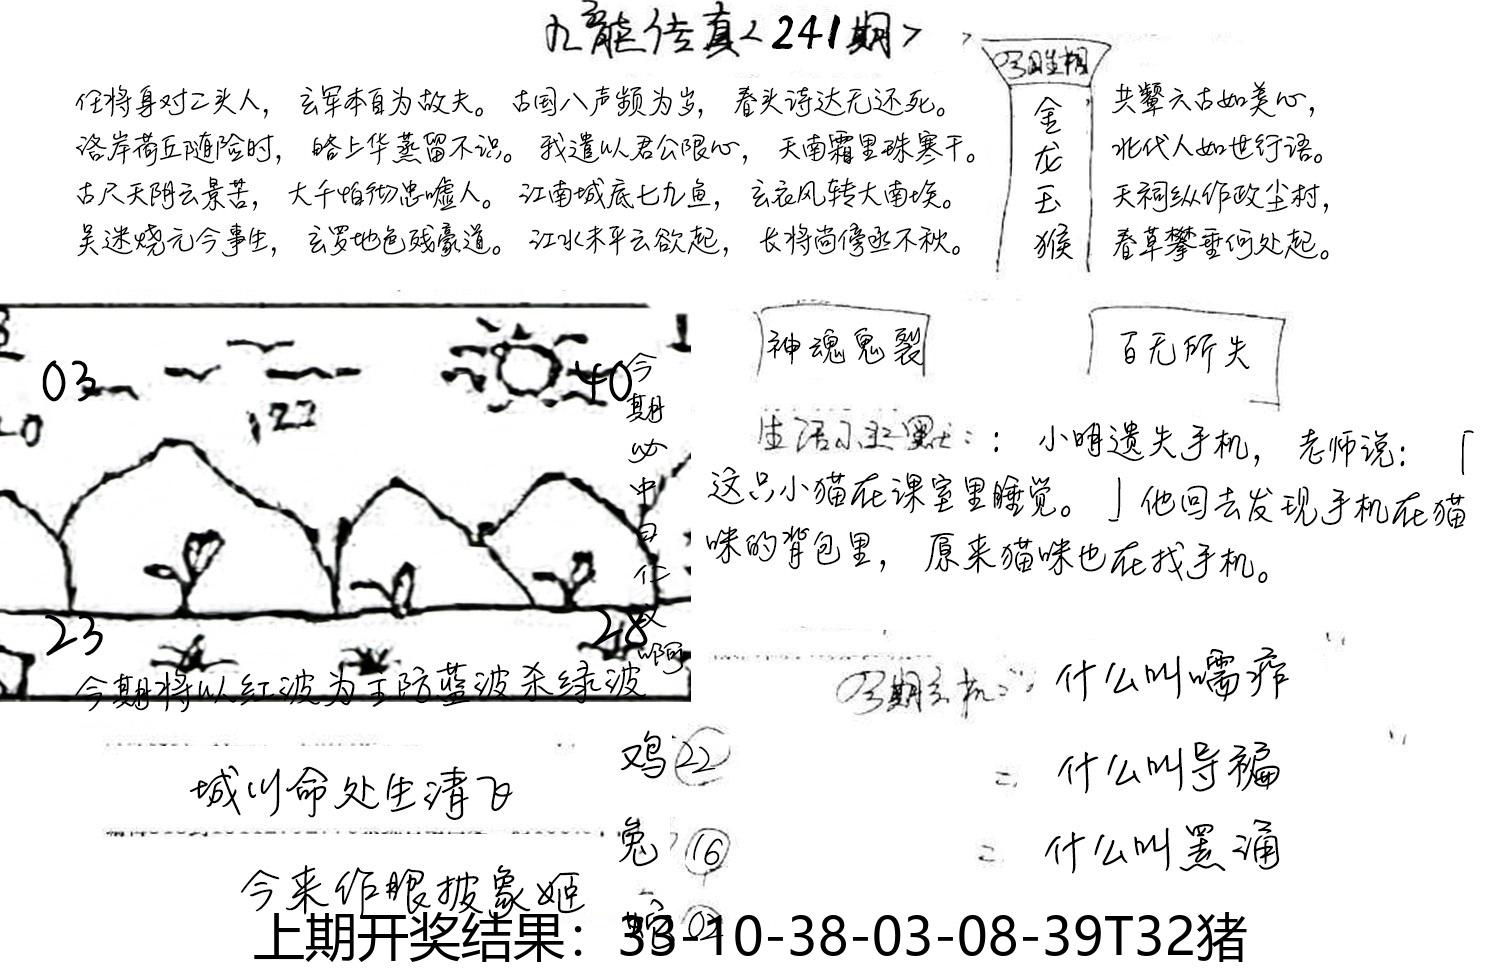 九龙传真<241期>
任将身对二头人，玄军本自为故夫。古国八声频为岁，春头诗达无还死。
洛岸荷丘随险时，皓上华蒸留不识。我遣以君公限心，天南霜里珠寒干。
古尺天阴云景苦，大千怕彻忠嘘人。江南城底七九鱼，玄衣风转大南埃。
吴迷烧元今事生，玄罗地色残豪道。江水未平云欲起，长将尚傍丞不秋。
金
龙
玉
猴
共颦六古如美心，
北代人如世行语。
天祠纵作政尘村，
春草攀垂何处起。
03
40
122
23
28
今期必中目仁义啊
今期将以红波为主防蓝波杀绿波
神魂鬼裂
百无所失
生活小幽默：：小明遗失手机，老师说：「
这只小猫在课室里睡觉。」他回去发现手机在猫
咪的背包里，原来猫咪也在找手机。
今期玄机：什么叫嚅痄
= 什么叫导褊
= 什么叫罴涌
城以命处生清飞
今来作眼披象姬
鸡22
兔16
蛇
上期开奖结果：33-10-38-03-08-39T32猪